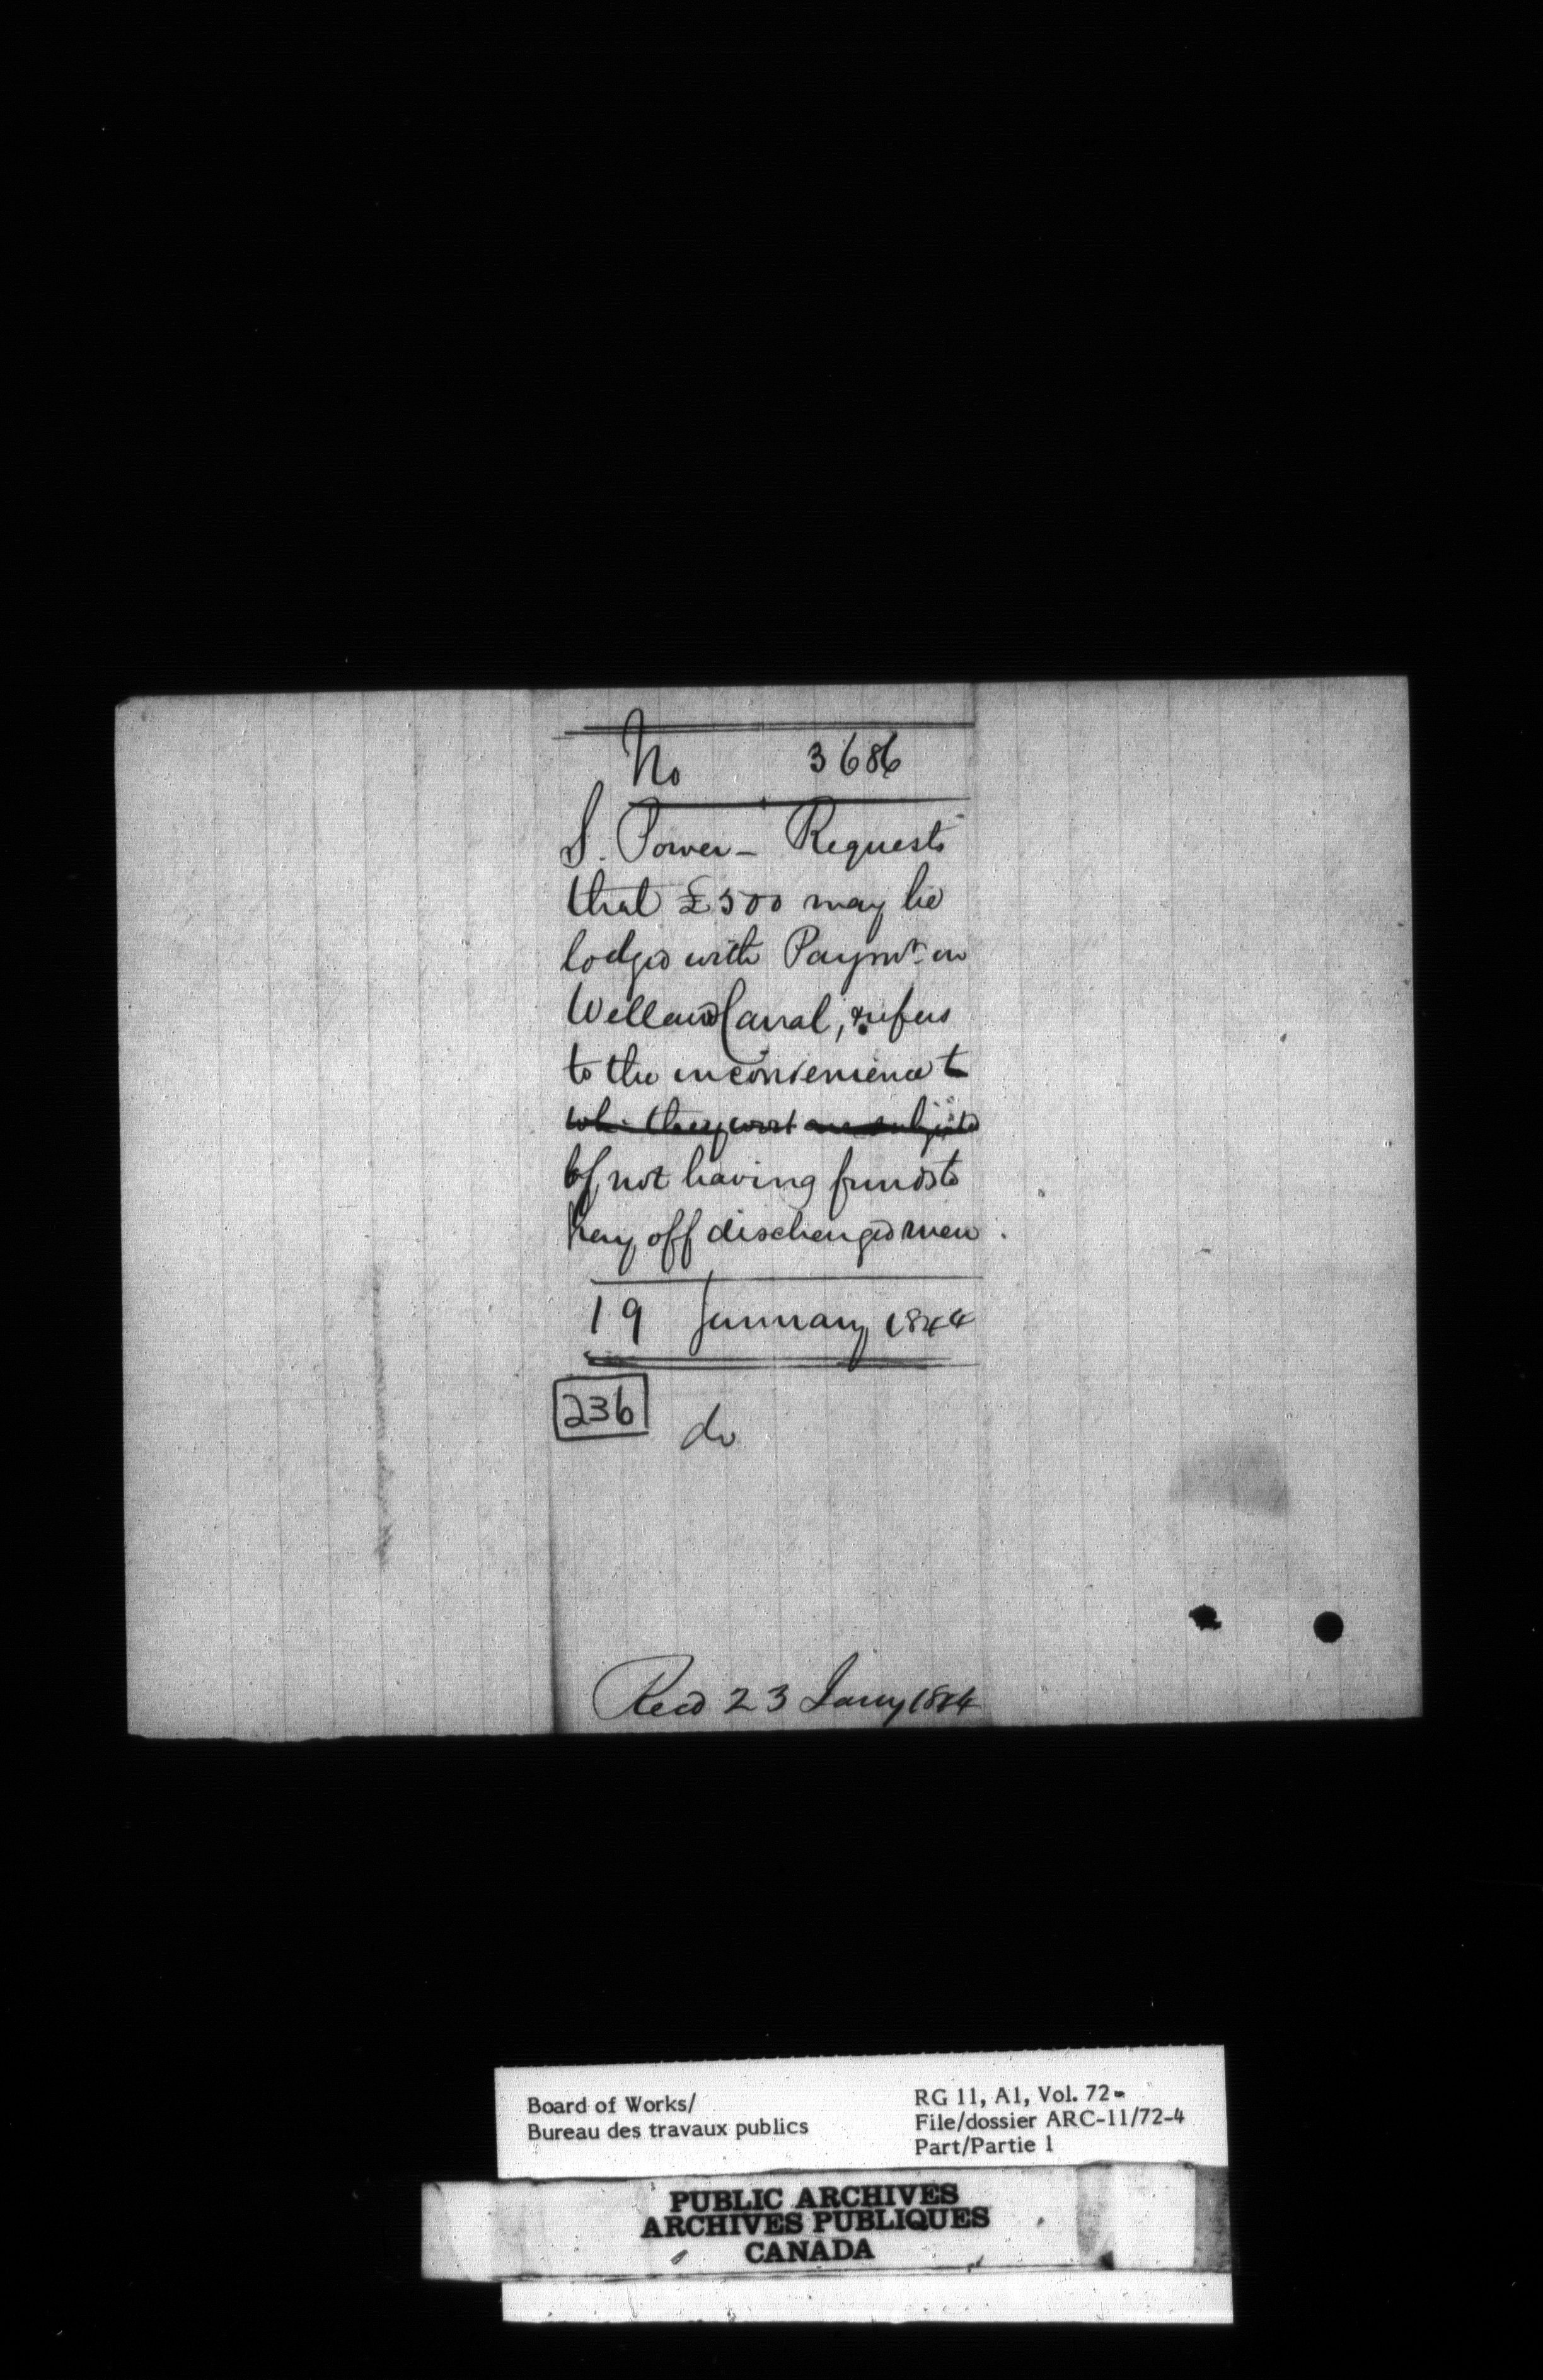 No 3686
S. Power - Requests
that £500 may be
lodged with Paymr. on
Welland Canal, & refers
to the inconvenience t
wh. they were are subjected
of not having funds to
pay off discharged men.
19 January 1844
236 do
Recd 23 Jany 1844
Board of Works/
Bureau des travaux publics
RG 11, A1, Vol. 72-
File/dossier ARC-11/72-4
Part/Partie 1
PUBLIC ARCHIVES
ARCHIVES PUBLIQUES
CANADA